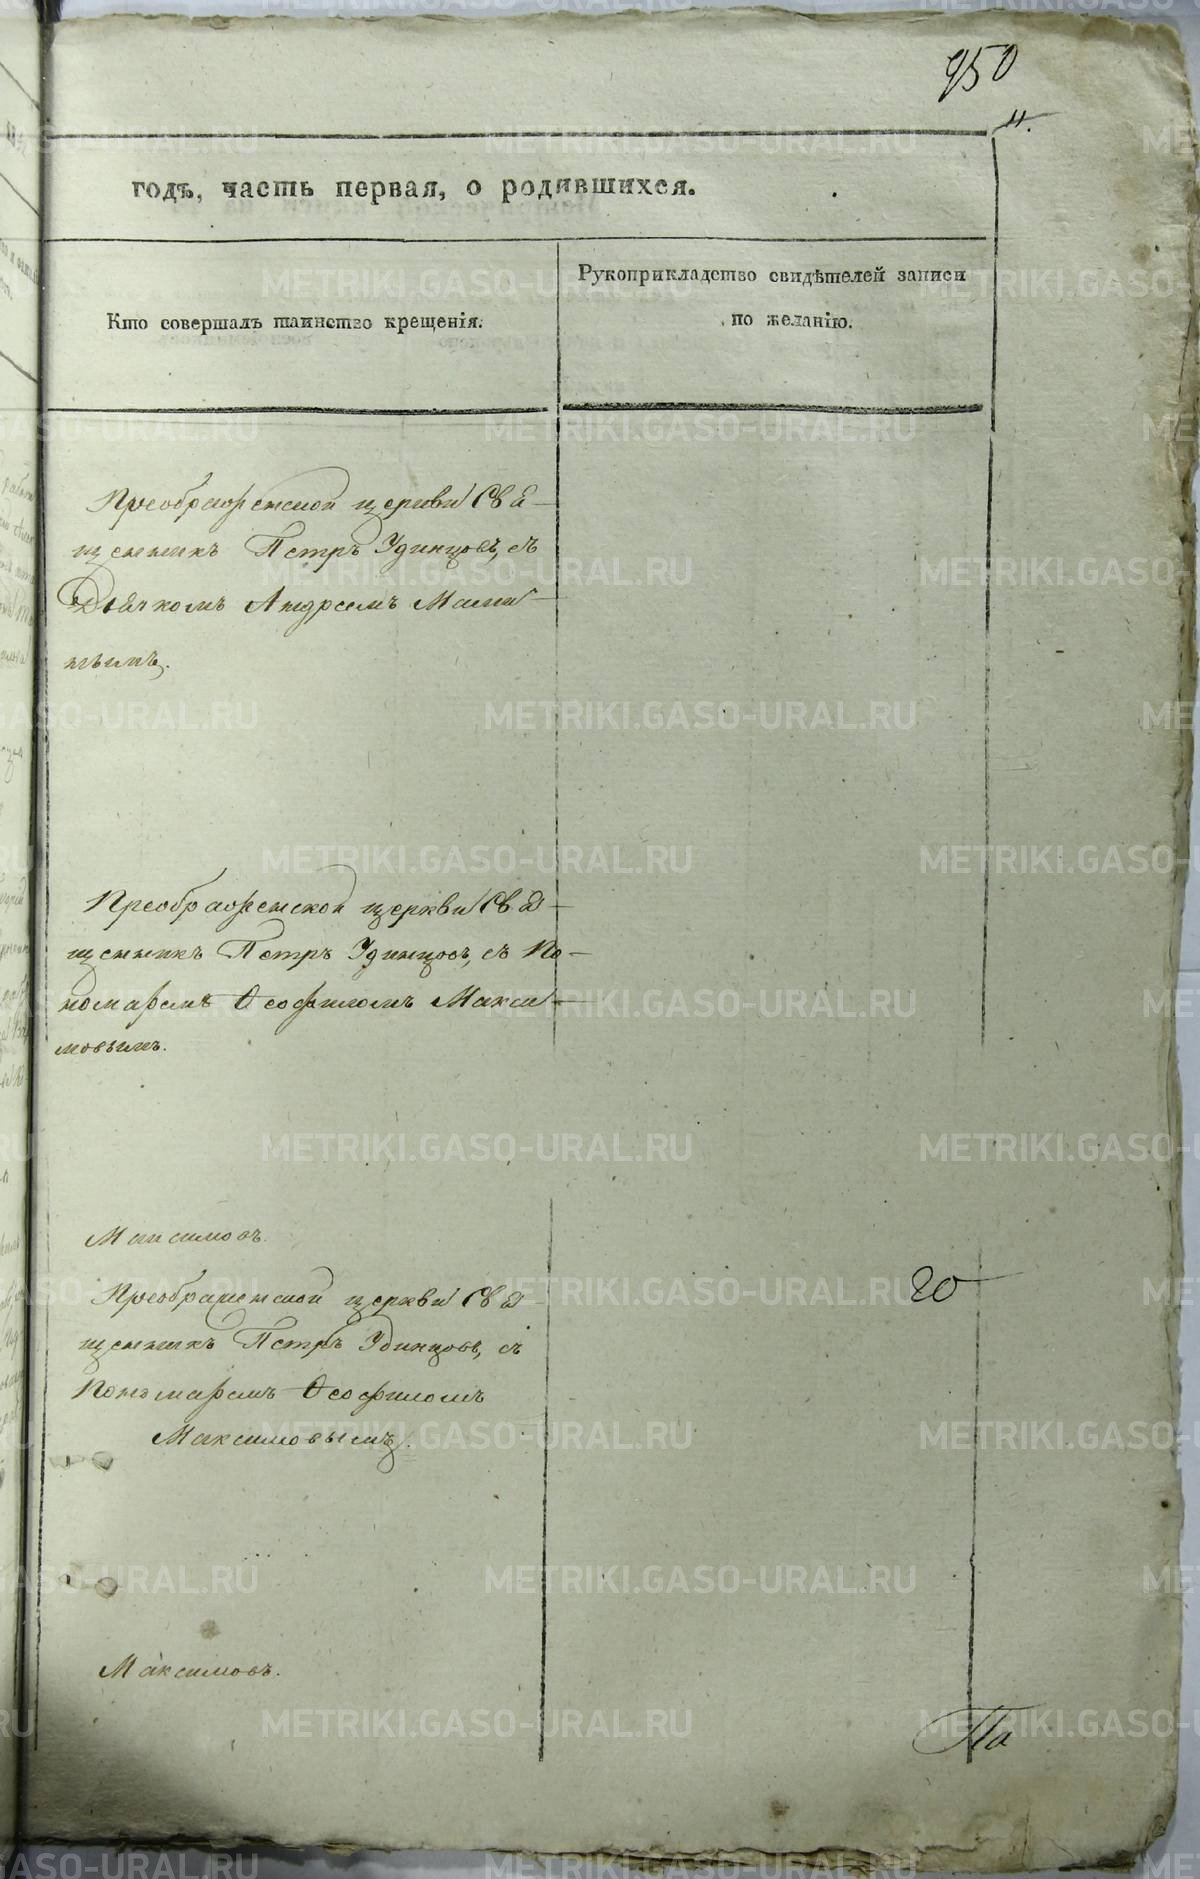 950
11.
годъ, часть первая, о родившихся.
Кто совершалъ таинство крещенія.
Рукоприкладство свидѣтелей записи
по желанію.
Преображенской церкви Свя-
щенникъ Петръ Удинцовъ, съ
Дьячкомъ Андреемъ Мами-
нымъ.
Преображенской церкви Свя-
щенникъ Петръ Удинцовъ, съ По-
номаремъ Ѳеофиломъ Макси-
мовымъ.
Максимовъ.
Преображенской церкви Свя-
щенникъ Петръ Удинцовъ, съ
Пономаремъ Ѳеофиломъ
Максимовымъ.
20
Максимовъ.
По
METRIKI.GASO-URAL.RU